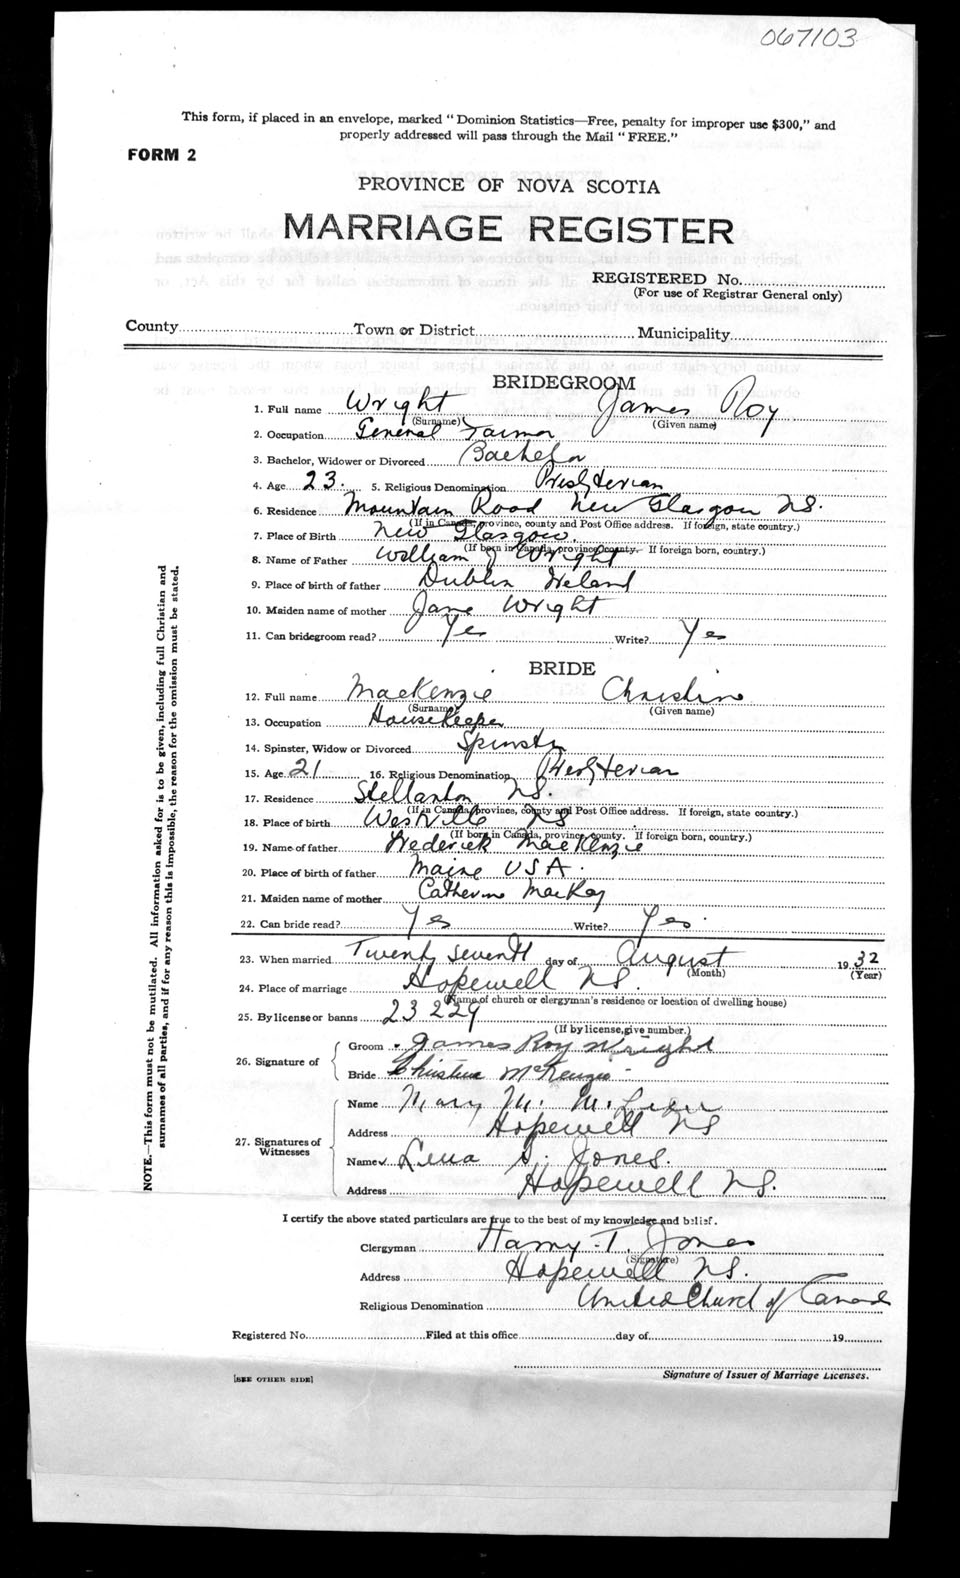 067103
This form, if placed in an envelope, marked "Dominion Statistics—Free, penalty for improper use $300," and
properly addressed will pass through the Mail "FREE."
FORM 2
PROVINCE OF NOVA SCOTIA
MARRIAGE REGISTER
REGISTERED No.
(For use of Registrar General only)
County Town or District Municipality
BRIDEGROOM
1. Full name Wright James Roy
(Surname) (Given name)
2. Occupation General Farmer
3. Bachelor, Widower or Divorced Bachelor
4. Age 23. 5. Religious Denomination Presbyterian
6. Residence Mountain Road New Glasgow N.S.
(If in Canada, province, county and Post Office address. If foreign, state country.)
7. Place of Birth New Glasgow.
(If born in Canada, province, county. If foreign born, country.)
8. Name of Father William J Wright
9. Place of birth of father Dublin Ireland
10. Maiden name of mother Jane Wright
11. Can bridegroom read? Yes Write? Yes
BRIDE
12. Full name MacKenzie Christine
(Surname) (Given name)
13. Occupation Housekeeper
14. Spinster, Widow or Divorced Spinster
15. Age 21 16. Religious Denomination Presbyterian
17. Residence Stellarton N.S.
(If in Canada, province, county and Post Office address. If foreign, state country.)
18. Place of birth Westville NS
(If born in Canada, province, county. If foreign born, country.)
19. Name of father Frederick MacKenzie
20. Place of birth of father Maine USA.
21. Maiden name of mother Catherine MacKay
22. Can bride read? Yes Write? Yes.
23. When married Twenty seventh day of August 1932
(Month) (Year)
24. Place of marriage Hopewell N.S.
(Name of church or clergyman's residence or location of dwelling house)
25. By license or banns 23229
(If by license, give number.)
26. Signature of
Groom James Roy Wright
Bride Christina McKenzie
27. Signatures of Witnesses
Name Mary M.
Address Hopewell NS
Name Lena S. Jones.
Address Hopewell N.S.
I certify the above stated particulars are true to the best of my knowledge and belief.
Clergyman Harry T. Jones
(Signature)
Address Hopewell N.S.
Religious Denomination United Church of Canada
Registered No. Filed at this office day of 19
Signature of Issuer of Marriage Licenses.
[SEE OTHER SIDE]
NOTE.—This form must not be mutilated. All information asked for is to be given, including full Christian and
surnames of all parties, and if for any reason this is impossible, the reason for the omission must be stated.